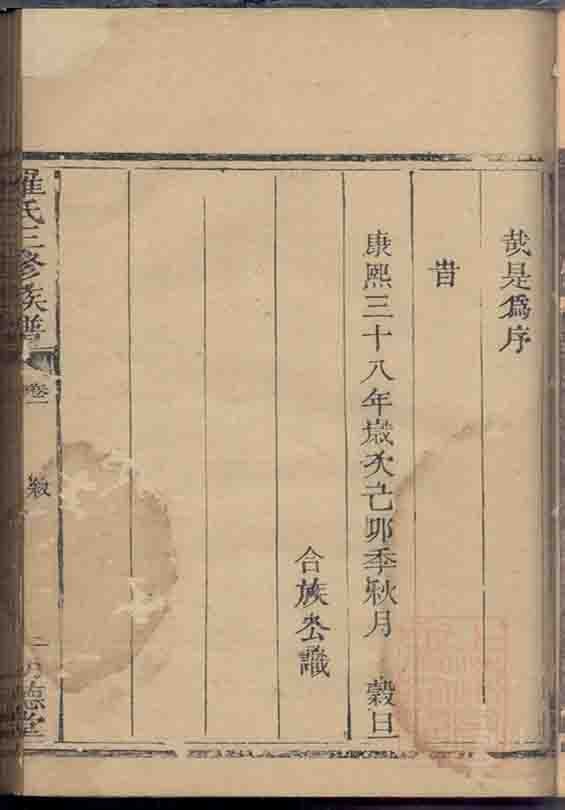 哉是爲序
旹
康熙三十八年歲次己卯季秋月　穀旦
合族公識
羅氏三修族譜
卷一
敘
明德堂